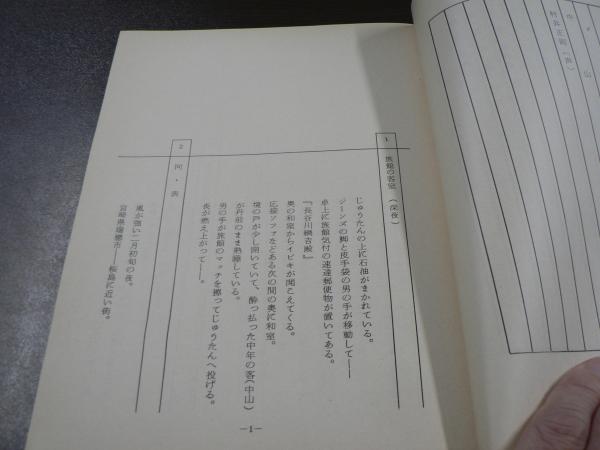 1 旅館の客室 (深夜)
じゅうたんの上に石油がまかれている。
ジーンズの脚と皮手袋の男の手が移動して――
卓上に旅館気付の速達郵便物が置いてある。
『長谷川績吉殿』
奥の和室からイビキが聞こえてくる。
応接ソファなどある次の間の奥に和室。
境の戸が少し開いていて、酔っ払った中年の客(中山)
が丹前のまま熟睡している。
男の手が旅館のマッチを擦ってじゅうたんへ投げる。
炎が燃え上がって――。
2 同・表
風が強い二月初旬の夜。
宮崎県瑞穂市――桜島に近い街。
―1―
中 山